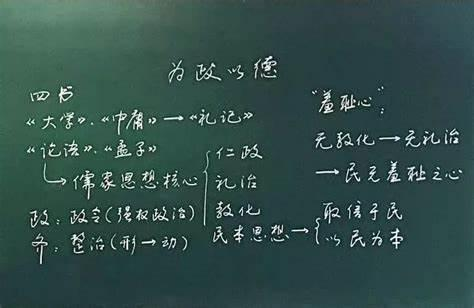 为政以德
四书
《大学》、《中庸》→《礼记》
《论语》、《孟子》
→儒家思想核心
仁政
礼治
教化
民本思想→
取信于民
以民为本
政:政令(强权政治)
齐:整治(形→动)
“羞耻心”:
无教化→无礼治
→民无羞耻之心